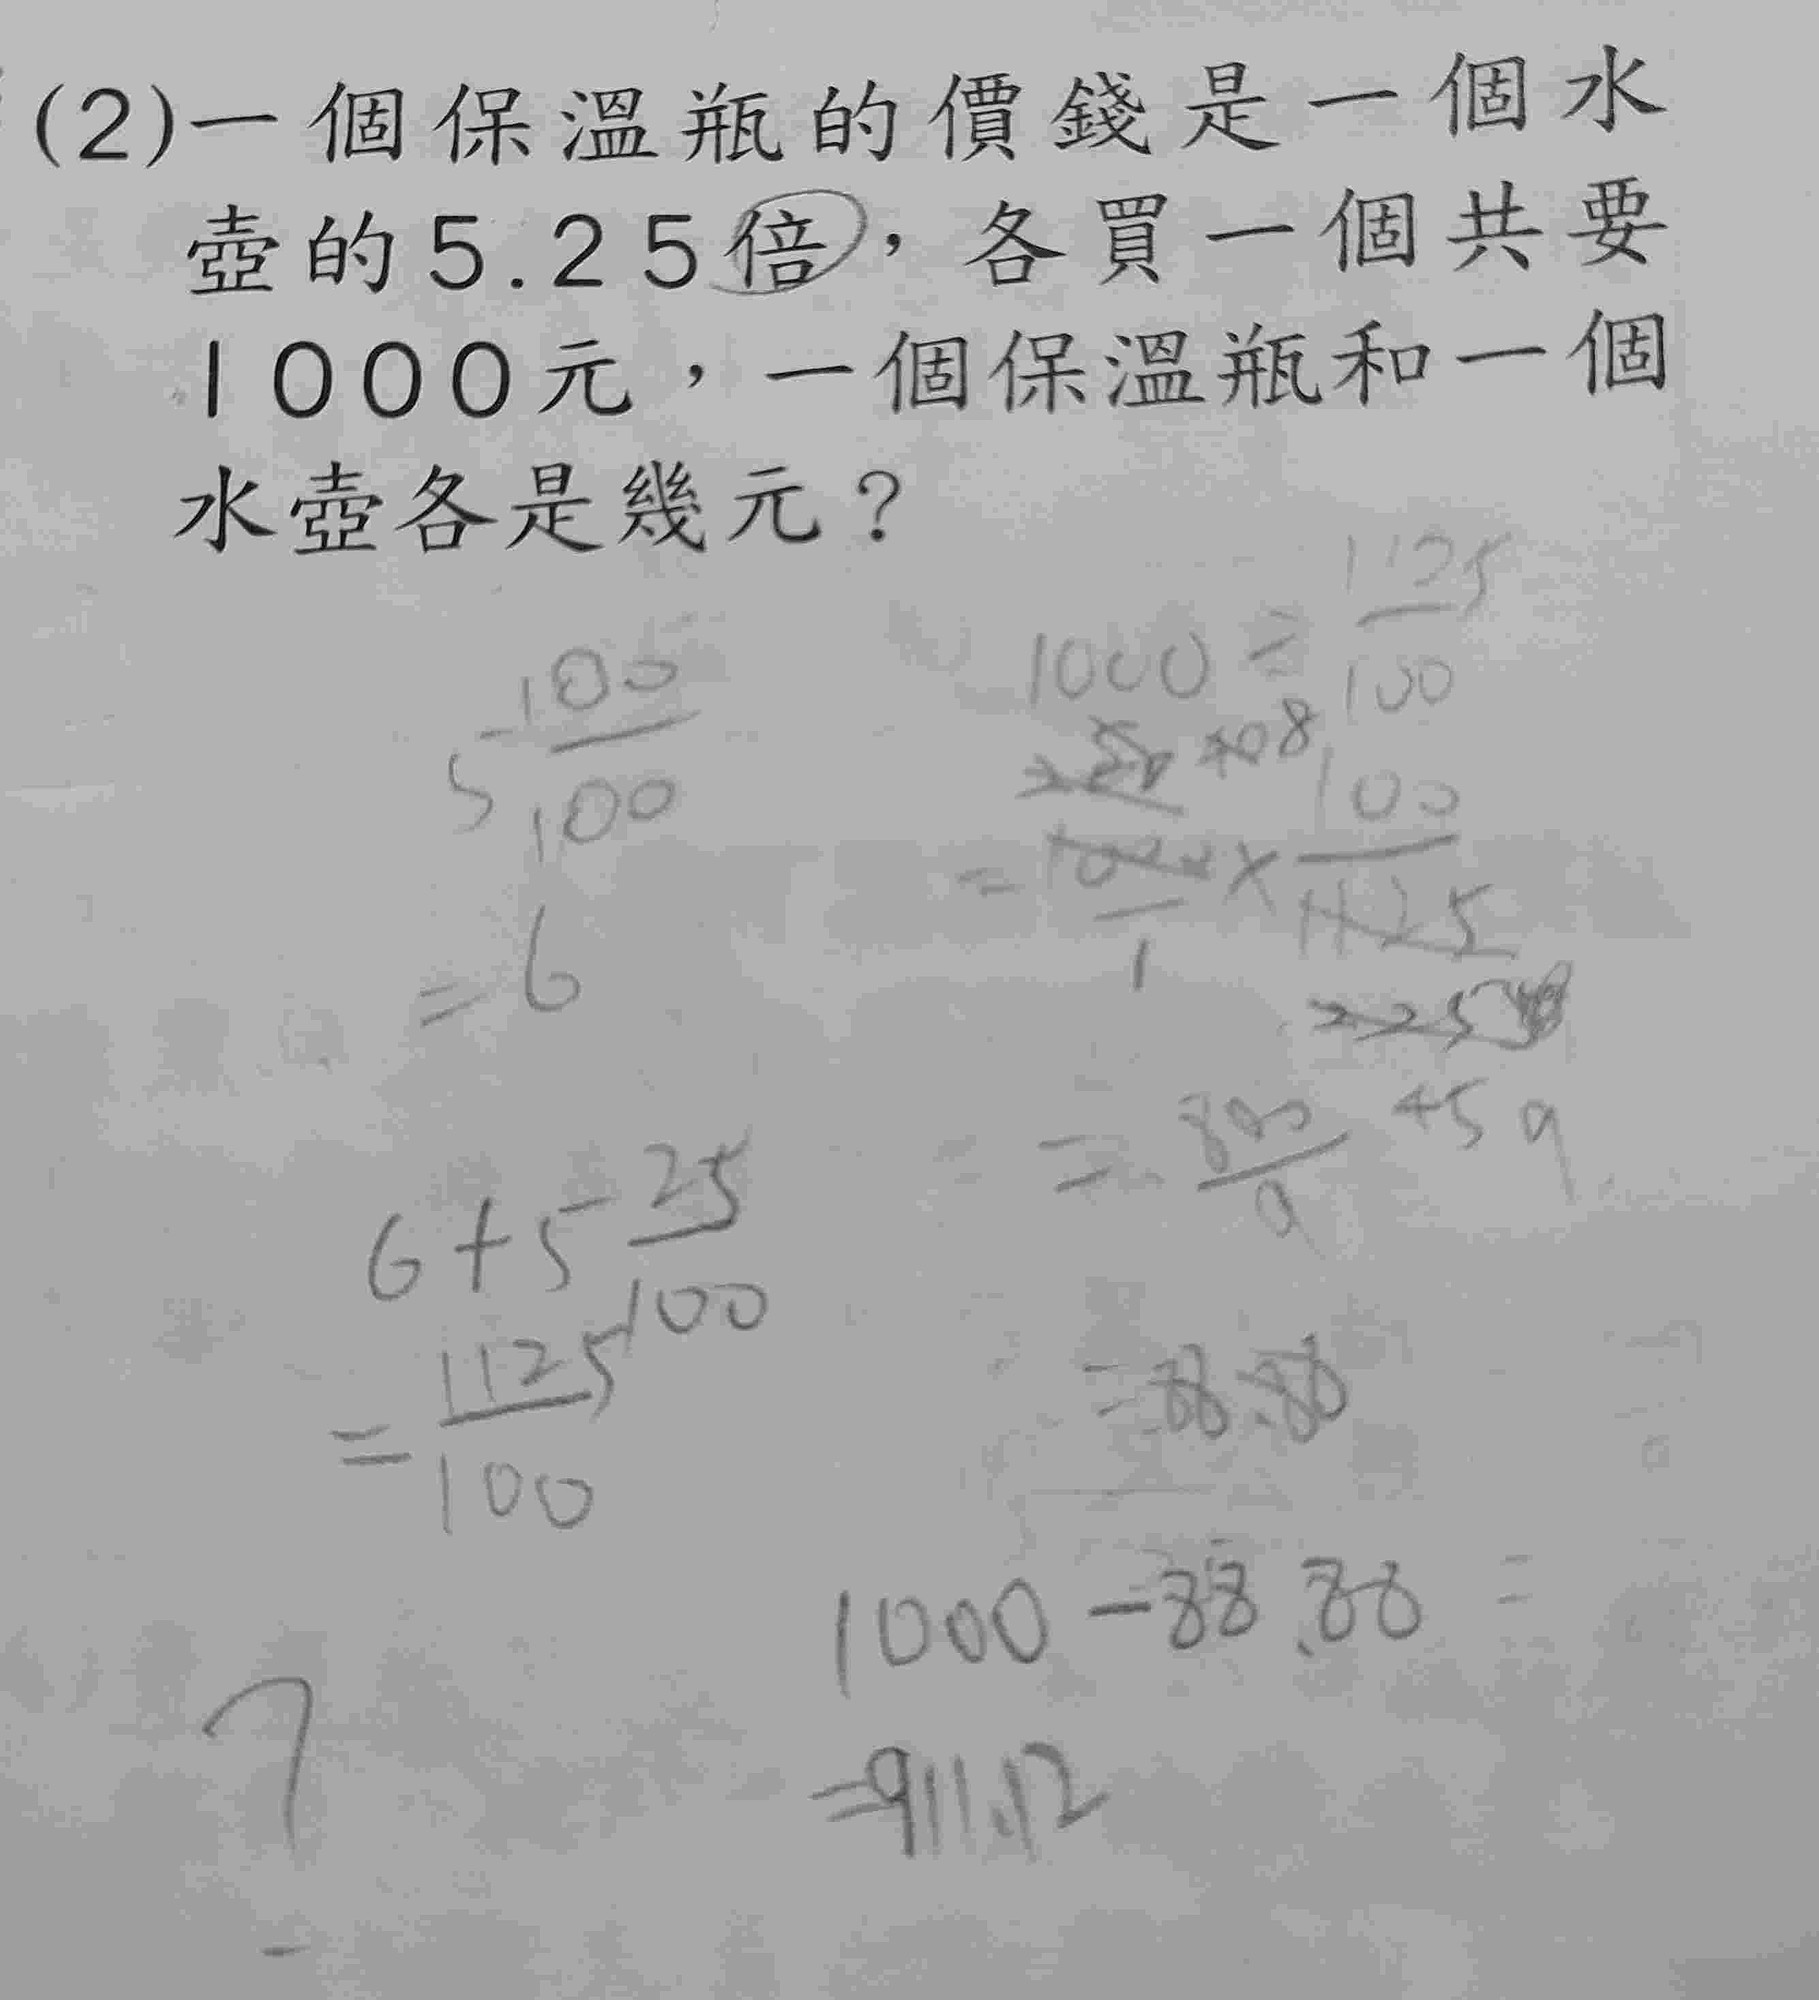 (2)一個保溫瓶的價錢是一個水
壺的5.25倍，各買一個共要
1000元，一個保溫瓶和一個
水壺各是幾元？
5 100/100
=6
6+5 25/100
=1125/100
1000÷1125/100
=1000/1×100/1125
=800/9
=88.88
1000-88.88=
=911.12
?